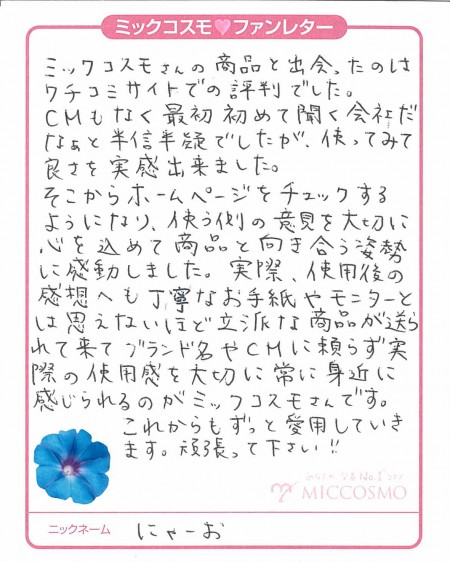 ミックコスモ♥ファンレター
ミックコスモさんの商品と出会ったのは
クチコミサイトでの評判でした。
CMもなく最初初めて聞く会社だ
なぁと半信半疑でしたが、使ってみて
良さを実感出来ました。
そこからホームページをチェックする
ようになり、使う側の意見を大切に
心を込めて商品と向き合う姿勢
に感動しました。実際、使用後の
感想へも丁寧なお手紙やモニターと
は思えないほど立派な商品が送ら
れて来てブランド名やCMに頼らず実
際の使用感を大切に常に身近に
感じられるのがミックコスモさんです。
これからもずっと愛用していき
ます。頑張って下さい!!
MICCOSMO
ニックネーム にゃーお